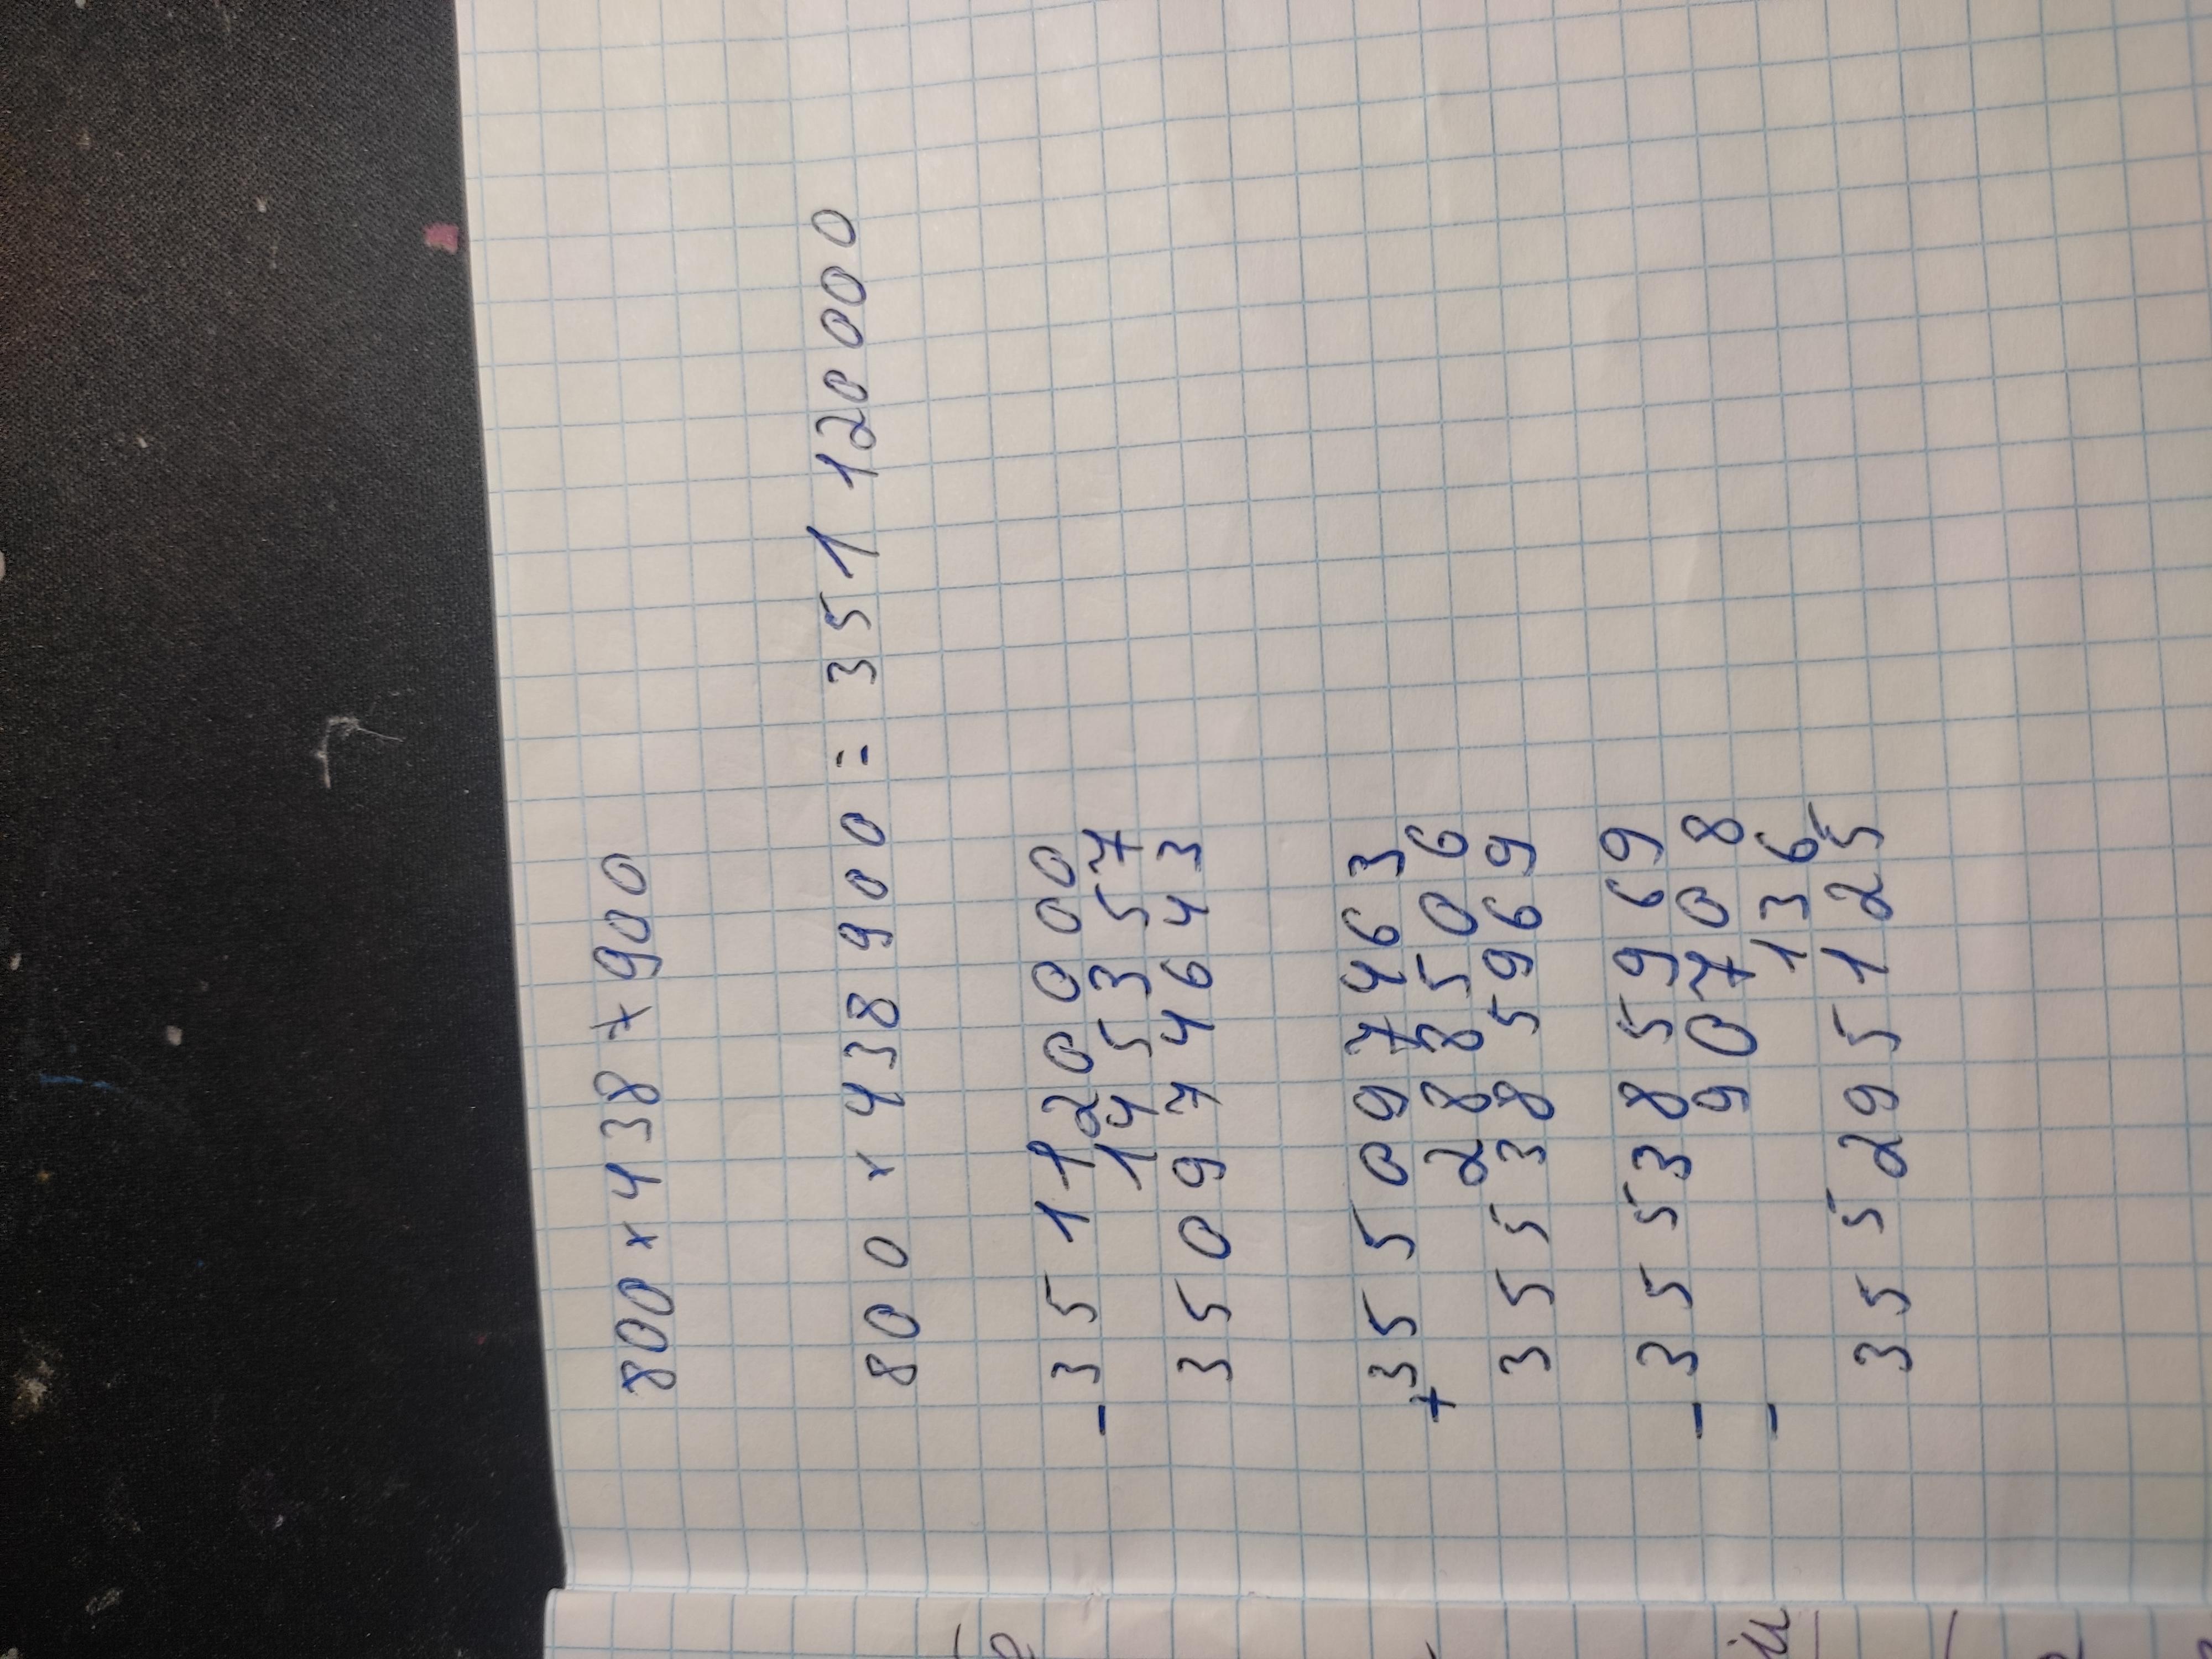 800 x 438 x 900
800 x 438 900 = 351 120 000
- 351120000
145357
350974643
+ 355097463
288506
355385969
- 355385969
- 90708
136
355295125